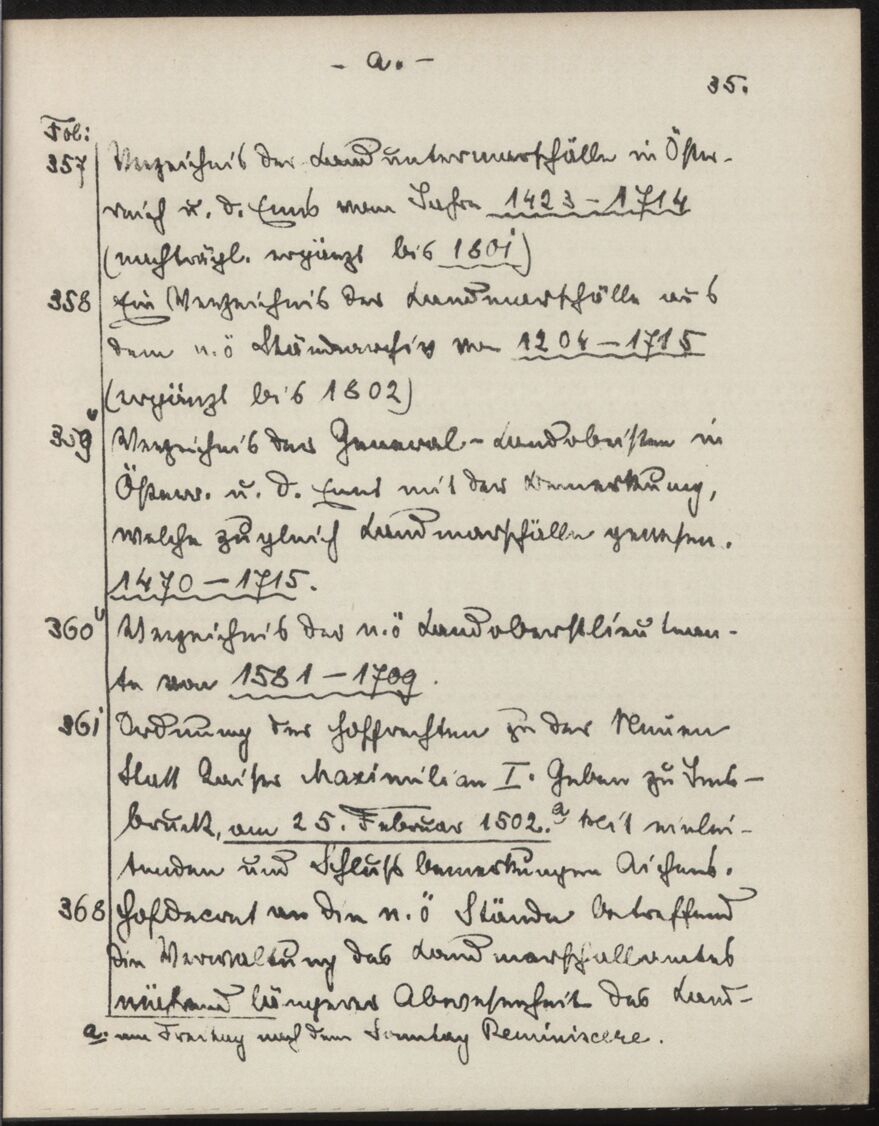 - a. -
35.
Fol:
357 Verzeichnis der Landuntermarschälle in Öster-
reich u. d. Enns vom Jahre 1423-1714
(nachträgl. ergänzt bis 1801)
358 Ein Verzeichnis der Landmarschälle aus
dem n.ö Ständearchiv von 1204-1715
(ergänzt bis 1802)
359v Verzeichnis der General-Landobristen in
Österr. u. d. Enns mit der Bemerkung,
welche zugleich Landmarschälle gewesen.
1470-1715.
360v Verzeichnis der n.ö Landoberstlieutnan-
te von 1581-1709.
361 Ordnung des Hoffrechten zu der Neuen
Statt Kaiser Maximilian I. Geben zu Inns-
bruck, am 25. Februar 1502.a Mit einlei-
tenden und Schlussbemerkungen Aichens.
368 Hofdecret an die n.ö Stände betreffend
die Verwaltung des Landmarschallamtes
während längerer Abwesenheit des Land-
a. am Freitag nach dem Sonntag Reminiscere.